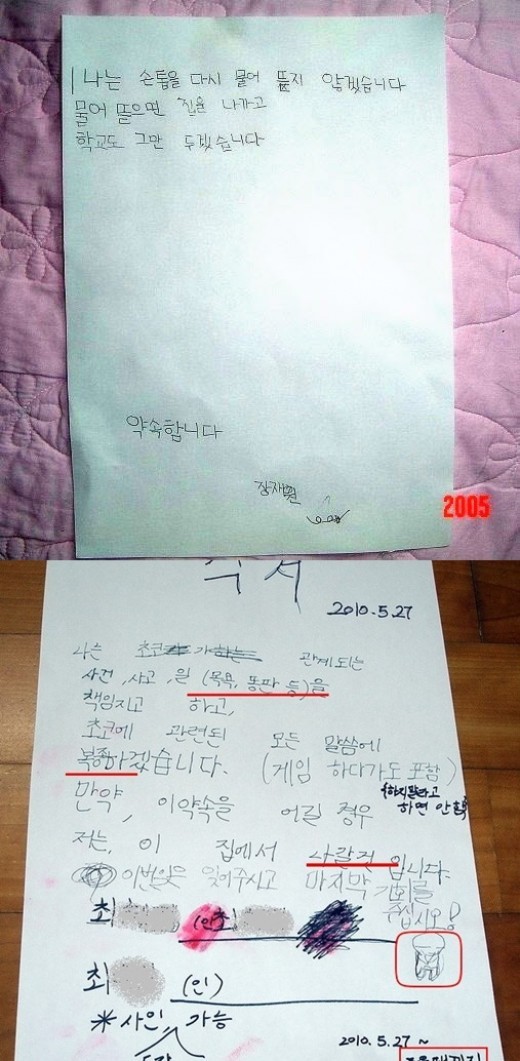 나는 손톱을 다시 물어 뜯지 않겠습니다
물어 뜯으면 집을 나가고
학교도 그만 두겠습니다
약속합니다
2005
각서
2010.5.27
나는 초코 가 관계되는
사건, 사고, 일 (목욕, 똥판 등)을
책임지고 하고,
초코에 관련된 모든 말씀에
복종하겠습니다. (게임 하다가도 포함)
만약, 이약속을 어길 경우
하지말라고
하면 안함
저는, 이 집에서 사라질건 입니다.
이번일은 잊어주시고 마지막 기회를
주십시오!
최 (인)
최 (인)
* 사인, 가능
도장
2010.5.27 ~